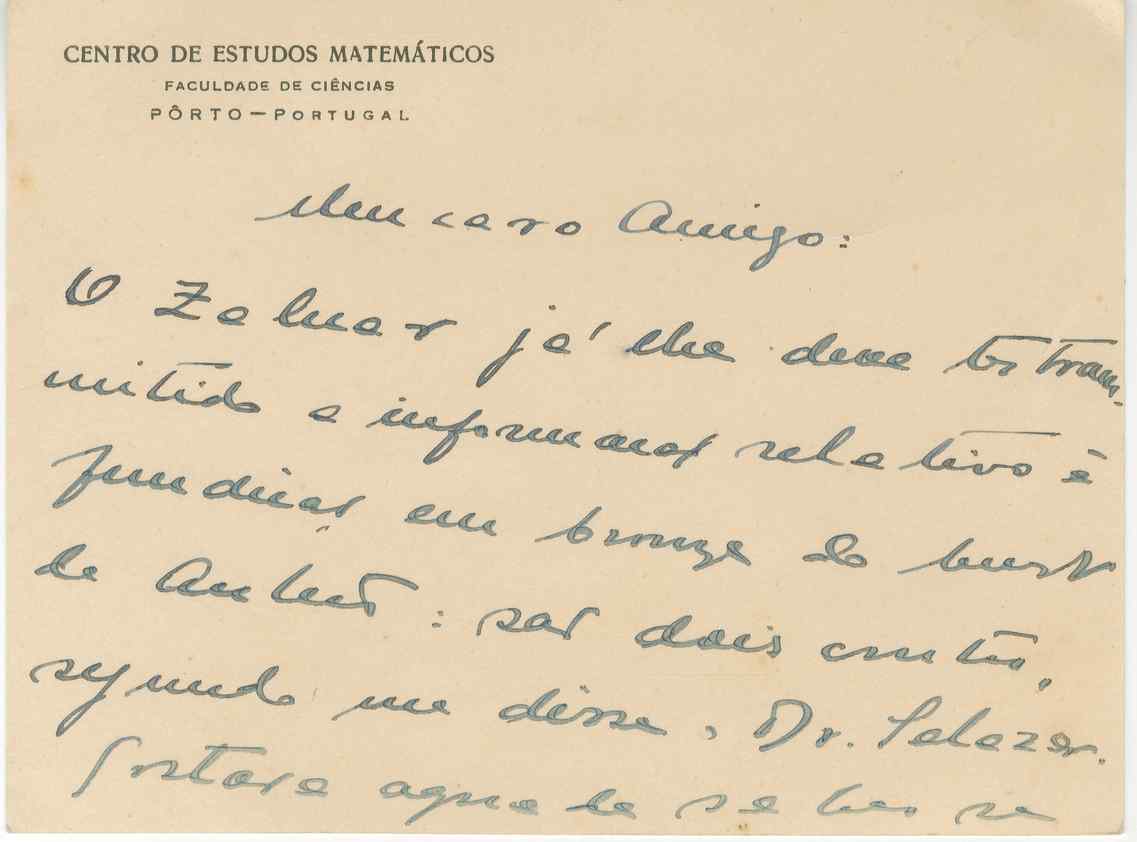 CENTRO DE ESTUDOS MATEMÁTICOS
FACULDADE DE CIÊNCIAS
PÔRTO — PORTUGAL
Meu caro Amigo:
O Zaluar já lhe deve ter trans-
mitido a informação relativo à
fundição em bronze do busto
de Antero: são dois contos,
segundo me disse, Dr. Salazar.
Gostava agora de saber se